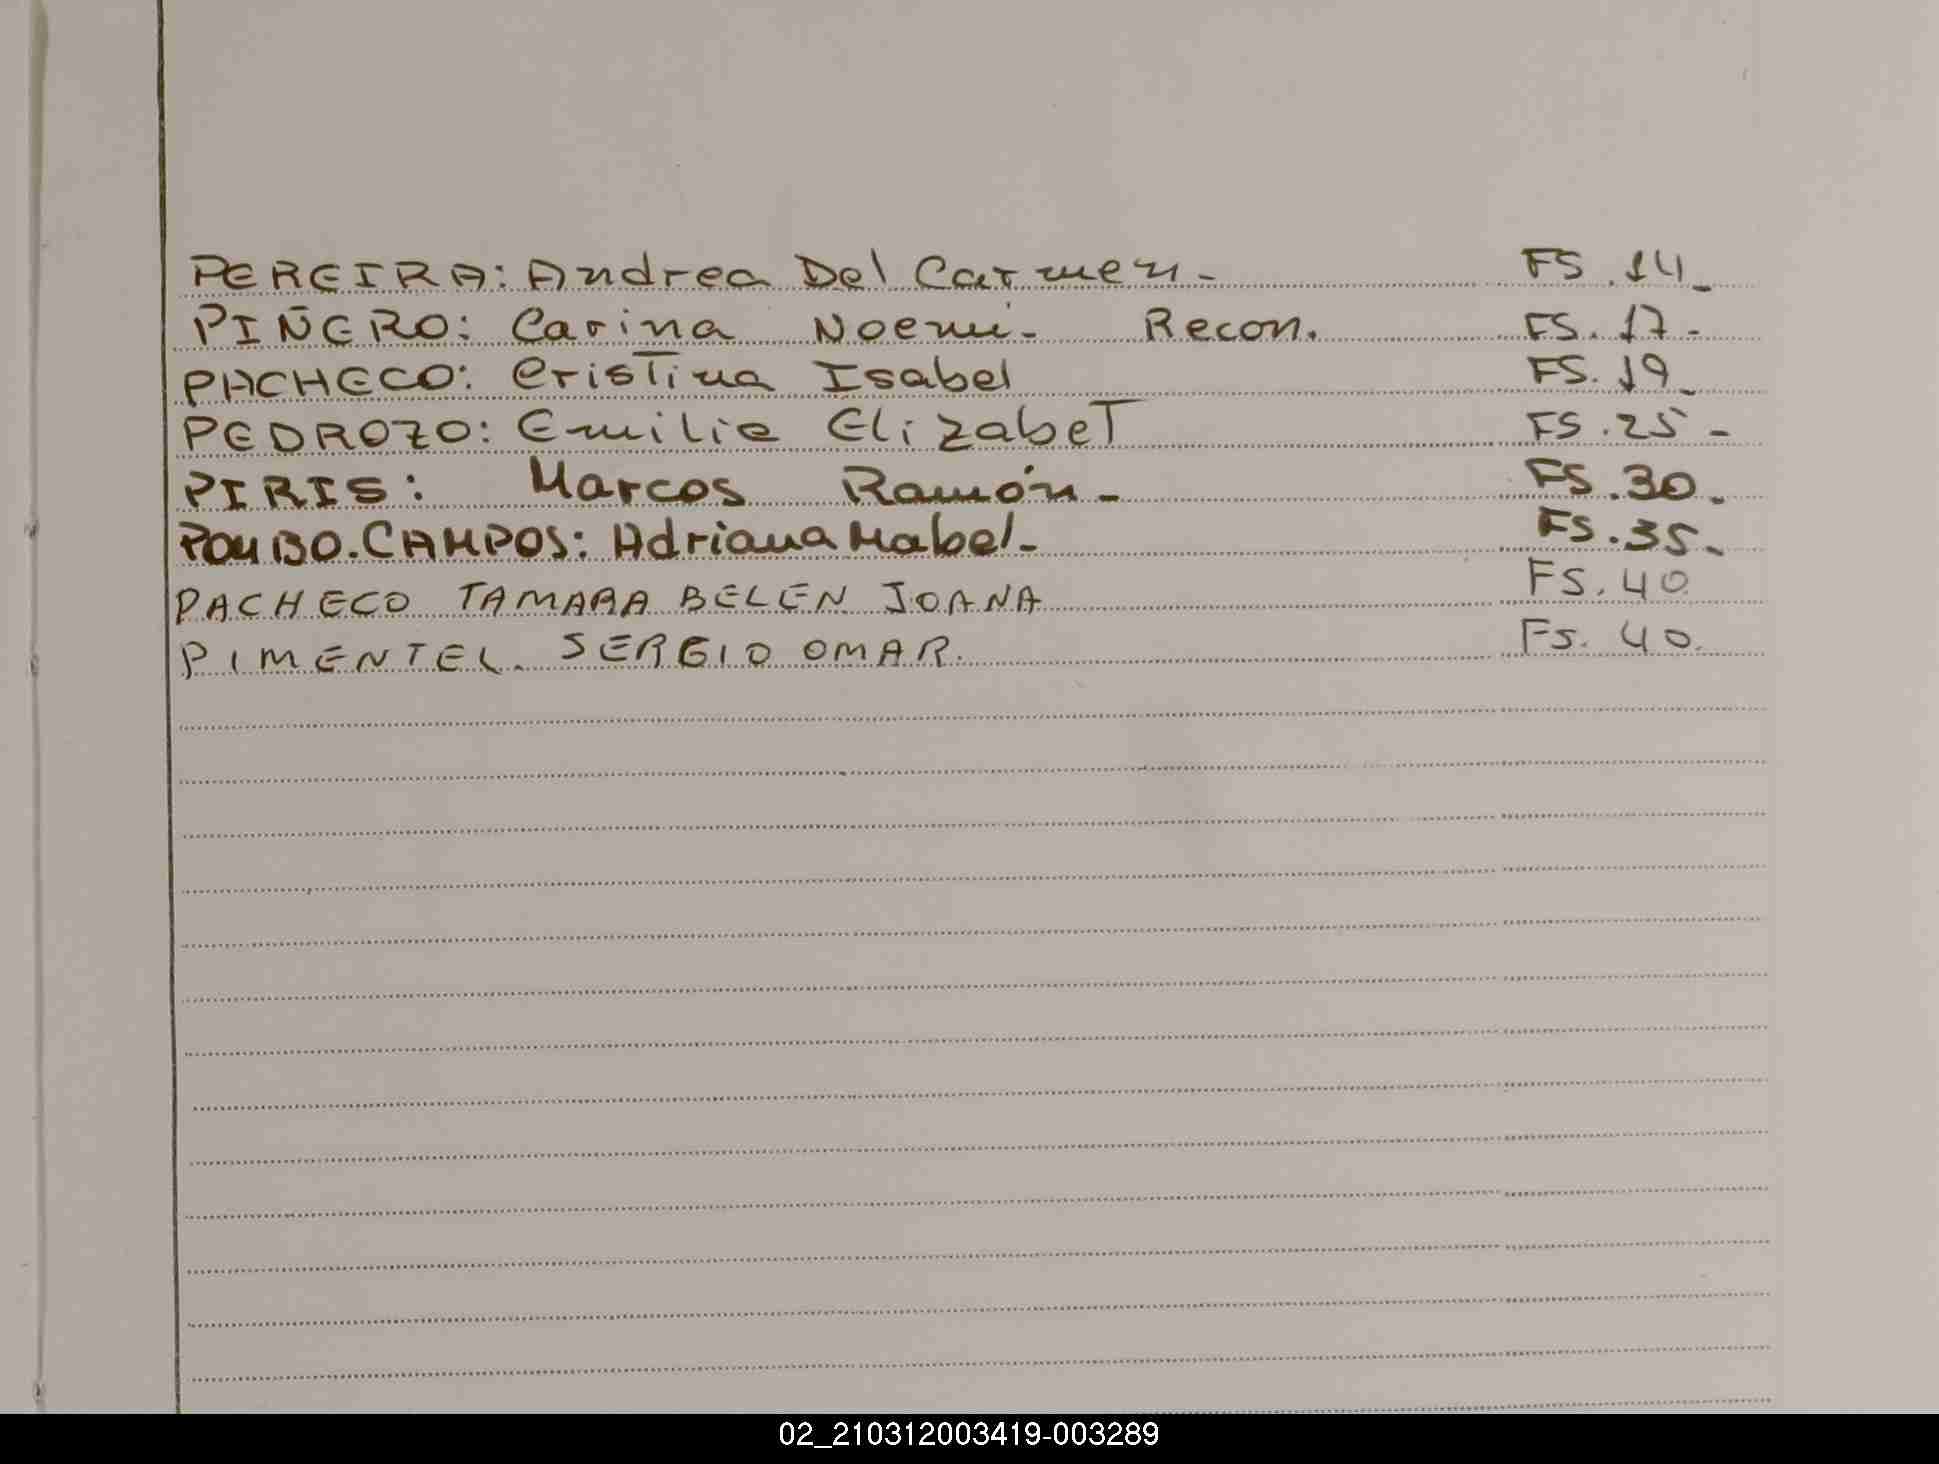 PEREIRA: Andrea Del Carmen- FS.14-
PIÑERO: Carina Noemi- Recon. FS.17-
PACHECO: Cristina Isabel FS.19-
PEDROZO: Emilia Elizabet FS.25-
PIRIS: Marcos Ramón- FS.30.
POMBO.CAMPOS: Adriana Mabel- FS.35-
PACHECO TAMARA BELEN JOANA FS.40
PIMENTEL. SERGIO OMAR. FS. 40.
02_210312003419-003289